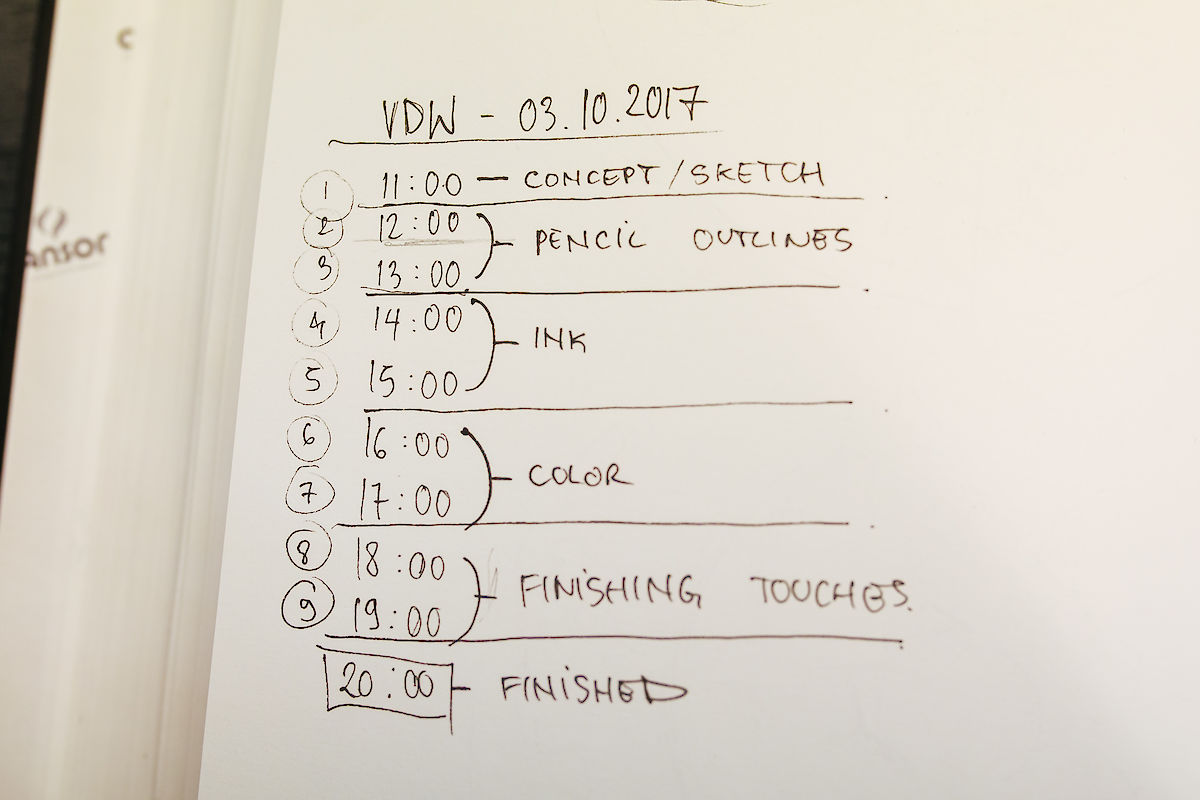 VDW - 03.10.2017
1 11:00 — CONCEPT/SKETCH
2 12:00
PENCIL OUTLINES
3 13:00
4 14:00
INK
5 15:00
6 16:00
COLOR
7 17:00
8 18:00
FINISHING TOUCHES.
9 19:00
20:00 - FINISHED
C
anson